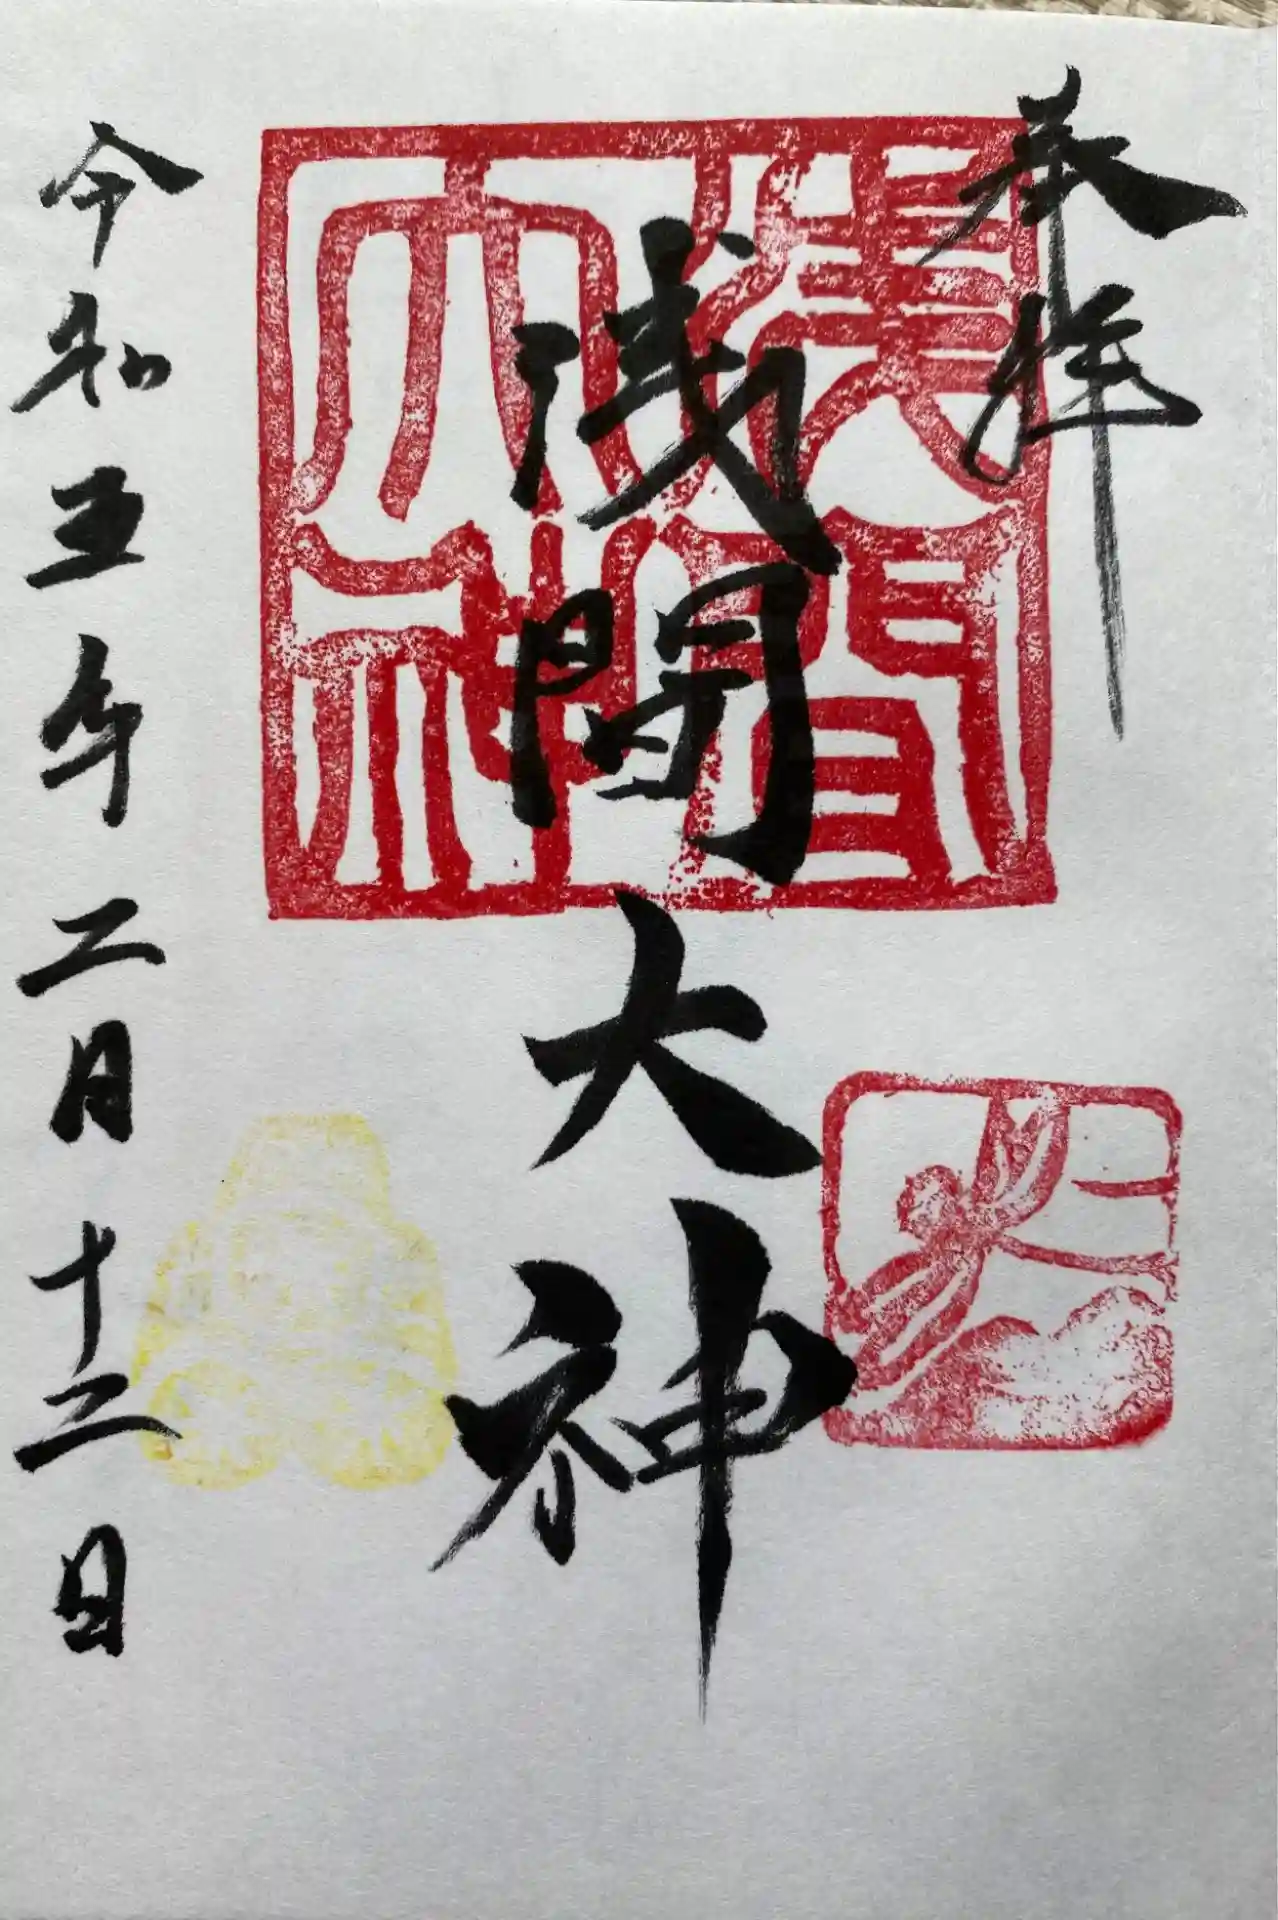 奉拝
浅間大神
浅間大神
令和五年二月十二日